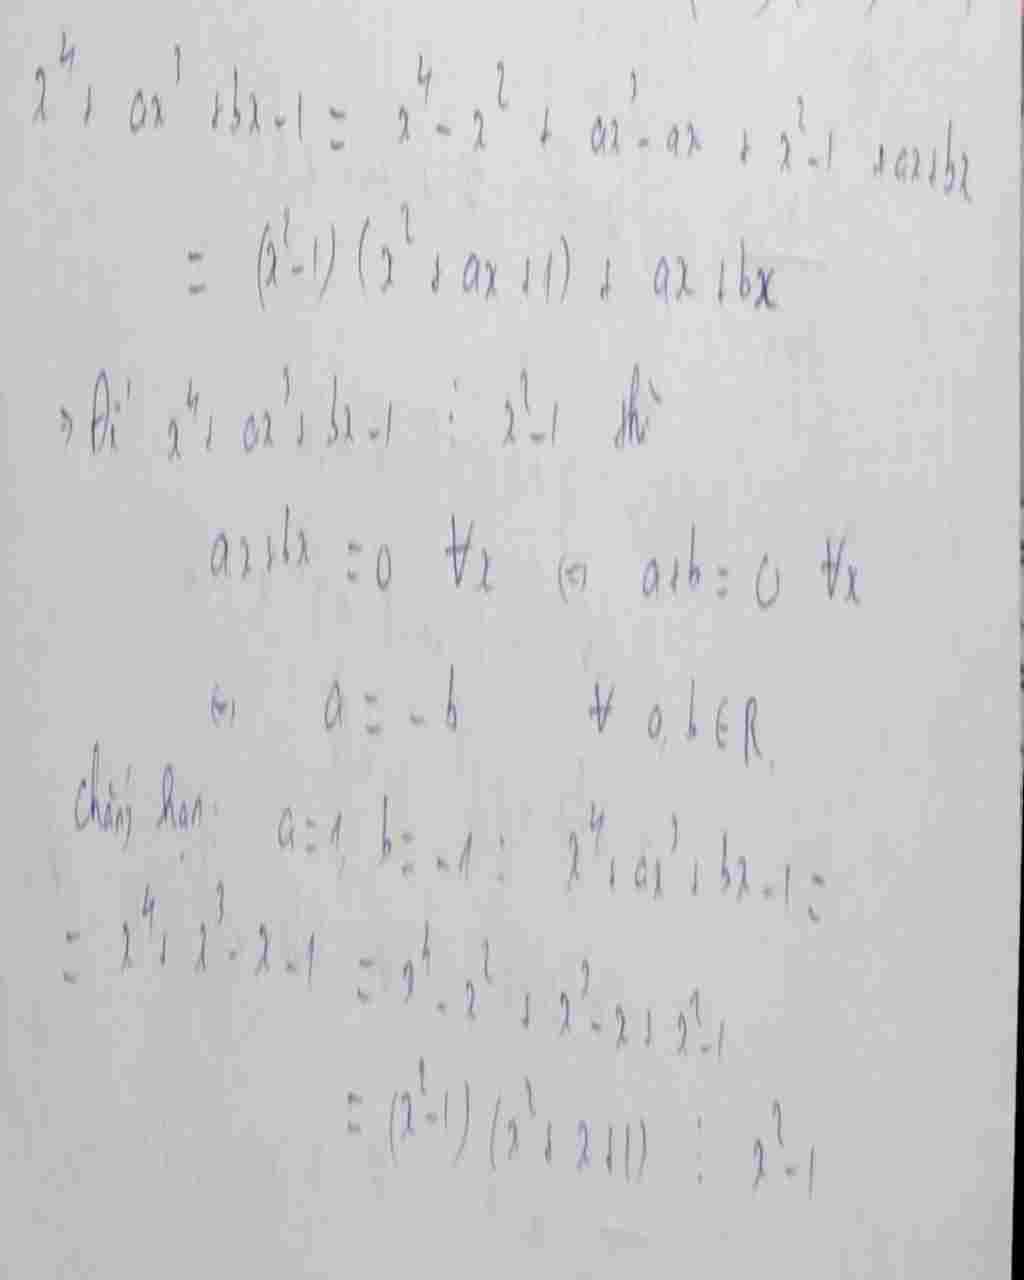 x⁴ + ax³ + bx - 1 = x⁴ - x² + ax³ - ax + x² - 1 + ax + bx
= (x² - 1)(x² + ax + 1) + ax + bx
⇒ Để x⁴ + ax³ + bx - 1 ⋮ x² - 1 thì
ax + bx = 0 ∀x ⇔ a + b = 0 ∀x
⇔ a = -b ∀ a, b ∈ R
Chẳng hạn: a = 1, b = -1 : x⁴ + ax³ + bx - 1 =
= x⁴ + x³ - x - 1 = x⁴ - x² + x³ - x + x² - 1
= (x² - 1)(x² + x + 1) ⋮ x² - 1